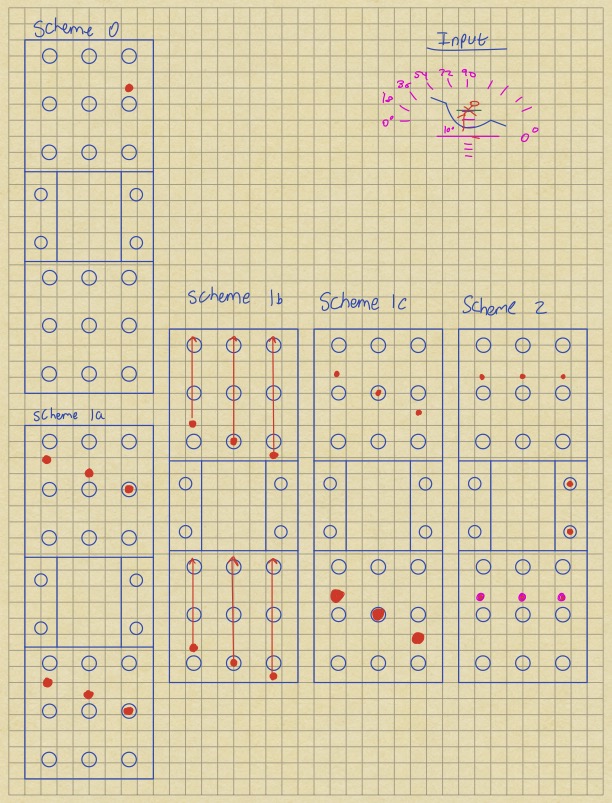 Scheme 0
Input
0°
18
36
54
72
90
10°
0°
Scheme 1b
Scheme 1c
Scheme 2
Scheme 1a